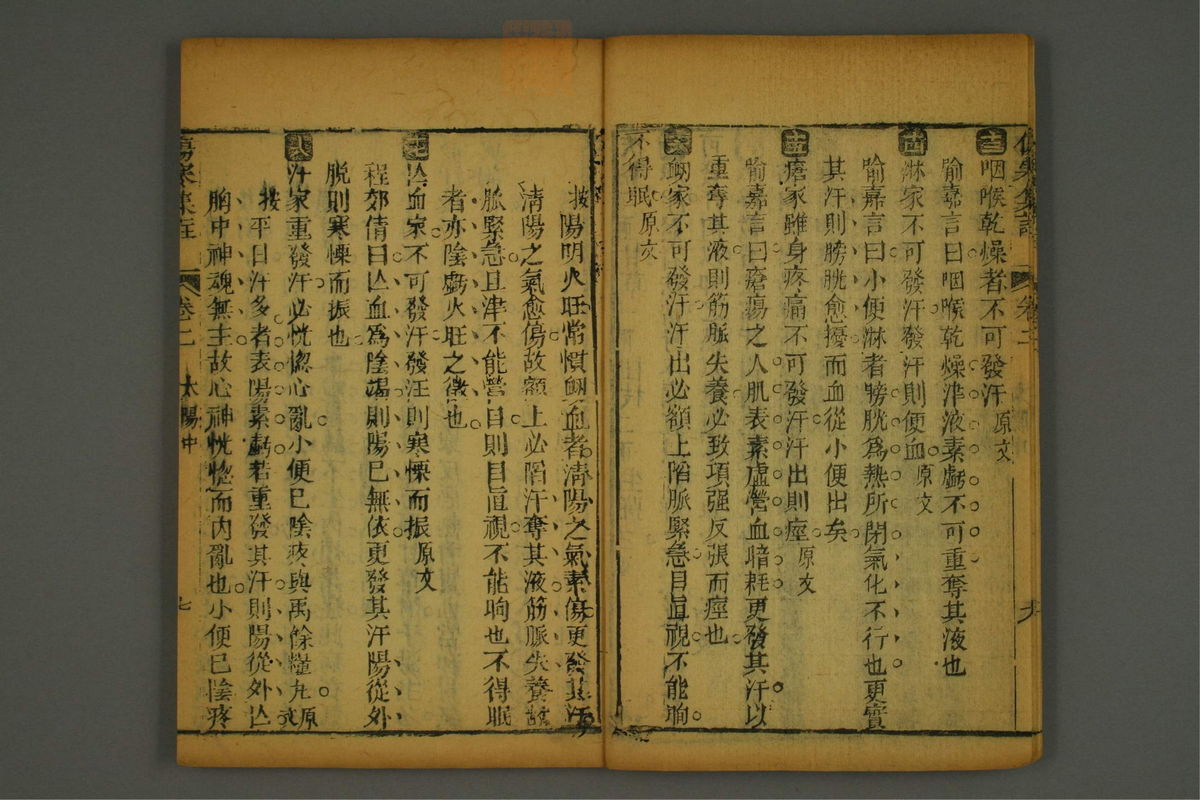 傷寒集註 卷二 六
十三 咽喉乾燥者不可發汗 原文
喻嘉言曰咽喉乾燥津液素虧不可重奪其液也
十四 淋家不可發汗發汗則便血 原文
喻嘉言曰小便淋者膀胱爲熱所閉氣化不行也更責
其汗則膀胱愈擾而血從小便出矣
十五 瘡家雖身疼痛不可發汗汗出則痙 原文
喻嘉言曰瘡瘍之人肌表素虛營血暗耗更發其汗以
重奪其液則筋脈失養必致項强反張而痙也
十六 衂家不可發汗汗出必額上陷脈緊急目直視不能眴
不得眠 原文
按陽明火旺常慣衂血者淸陽之氣素傷更發其汗
淸陽之氣愈傷故額上必陷汗奪其液筋脈失養故
脈緊急且津不能營目則目直視不能眴也不得眠
者亦陰虧火旺之徵也
十七 亾血家不可發汗發汪則寒慄而振 原文
程郊倩曰亾血爲陰竭則陽已無依更發其汗陽從外
脫則寒慄而振也
十八 汗家重發汗必恍惚心亂小便已陰疼與禹餘糧丸 原文
按平日汗多者表陽素虧若重發其汗則陽從外亾
胸中神魂無主故心神恍惚而內亂也小便已陰疼
傷寒集註 卷二 太陽中 七